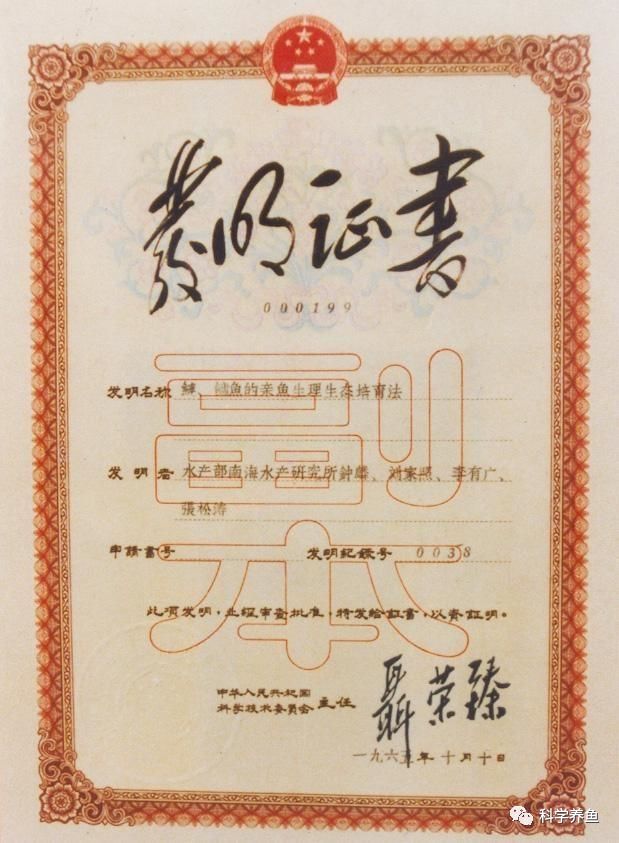 發明证書
000199
发明名称 鰱、鳙魚的亲鱼生理生态培育法
发明者 水产部南海水产研究所鈡麟、刘家照、李有广、
張松涛
申請書号 发明紀錄号 0038
副本
此項发明，业經审查批准，特发給証書，以資証明。
中华人民共和国
科学技术委員会 主任 聂荣臻
一九六五年十月十日
科学养鱼